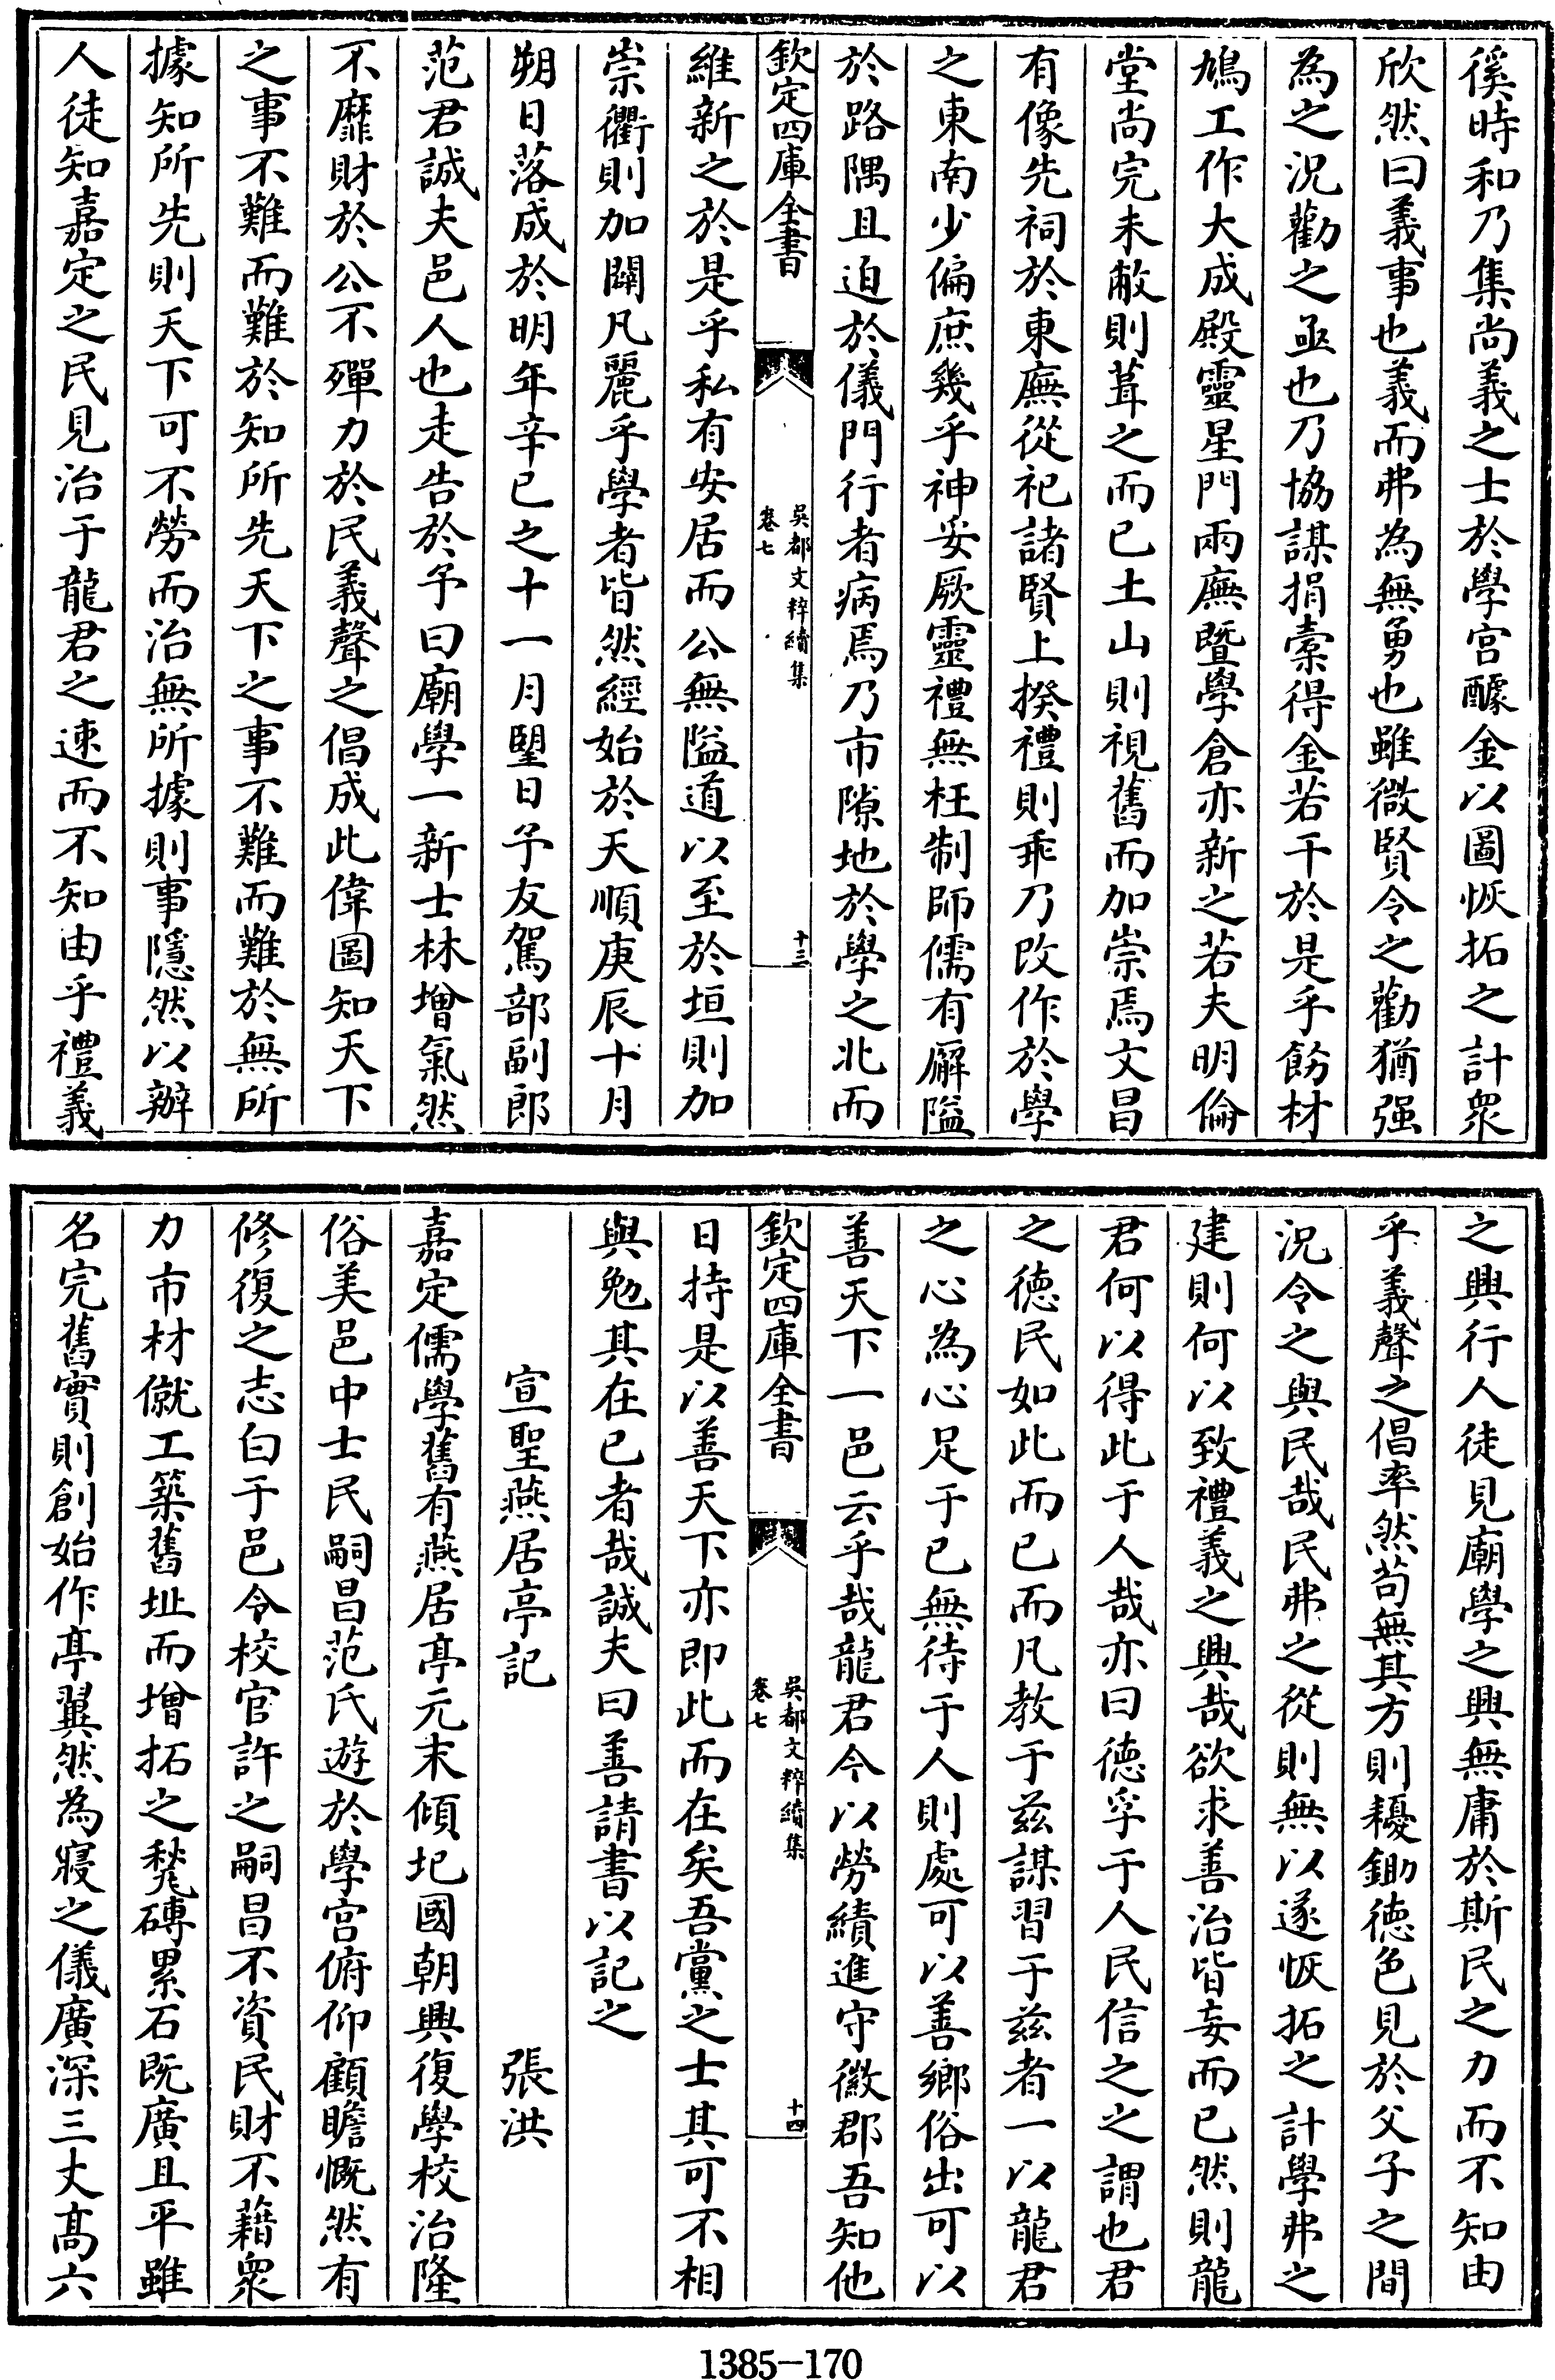 徯時和乃集尚義之士於學宮醵金以圖恢拓之計衆
欣然曰義事也義而弗為無勇也雖微賢令之勸猶强
為之況勸之亟也乃協謀捐槖得金若干於是乎飭材
鳩工作大成殿靈星門兩廡暨學倉亦新之若夫明倫
堂尚完未敝則葺之而已土山則視舊而加崇焉文昌
有像先祠於東廡從祀諸賢上揆禮則乖乃改作於學
之東南少偏庶幾乎神妥厥靈禮無枉制師儒有廨隘
於路隅且迫於儀門行者病焉乃市隙地於學之北而
欽定四庫全書
吳都文粹續集
卷七
十三
維新之於是乎私有安居而公無隘道以至於垣則加
崇衢則加闢凡麗乎學者皆然經始於天順庚辰十月
朔日落成於明年辛巳之十一月朢日予友駕部副郎
范君誠夫邑人也走告於予曰廟學一新士林增氣然
不靡財於公不殫力於民義聲之倡成此偉圖知天下
之事不難而難於知所先天下之事不難而難於無所
據知所先則天下可不勞而治無所據則事隱然以辦
人徒知嘉定之民見治于龍君之速而不知由乎禮義
之興行人徒見廟學之興無庸於斯民之力而不知由
乎義聲之倡率然苟無其方則耰鋤徳色見於父子之間
況令之與民哉民弗之從則無以遂恢拓之計學弗之
建則何以致禮義之興哉欲求善治皆妄而已然則龍
君何以得此于人哉亦曰徳孚于人民信之之謂也君
之徳民如此而已而凡教于兹謀習于兹者一以龍君
之心為心足于已無待于人則處可以善鄉俗出可以
善天下一邑云乎哉龍君今以勞績進守徽郡吾知他
欽定四庫全書
吳都文粹續集
卷七
十四
日持是以善天下亦即此而在矣吾黨之士其可不相
與勉其在已者哉誠夫曰善請書以記之
宣聖燕居亭記
張洪
嘉定儒學舊有燕居亭元末傾圮國朝興復學校治隆
俗美邑中士民嗣昌范氏遊於學宮俯仰顧瞻慨然有
修復之志白于邑令校官許之嗣昌不資民財不藉衆
力市材僦工築舊址而增拓之甃磚累石既廣且平雖
名完舊實則創始作亭翼然為寢之儀廣深三丈髙六
1385-170